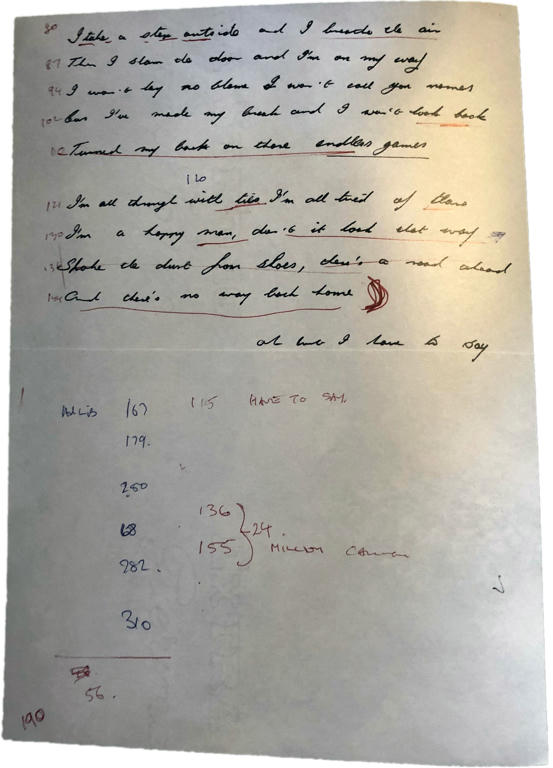 80 I take a step outside and I breathe the air
87 Then I slam the door and I'm on my way
94 I won't lay no blame I won't call you names
102 Cos I've made my break and I won't look back
Turned my back on those endless games
110
121 I'm all through with ties I'm all tired of
130 I'm a happy man, don't it look that way
Shake the dust from shoes, there's a road ahead
144 And there's no way back home
oh but I have to say
167 115 HAVE TO SAY
179.
250
136
68 24.
155
282.
310
56.
190